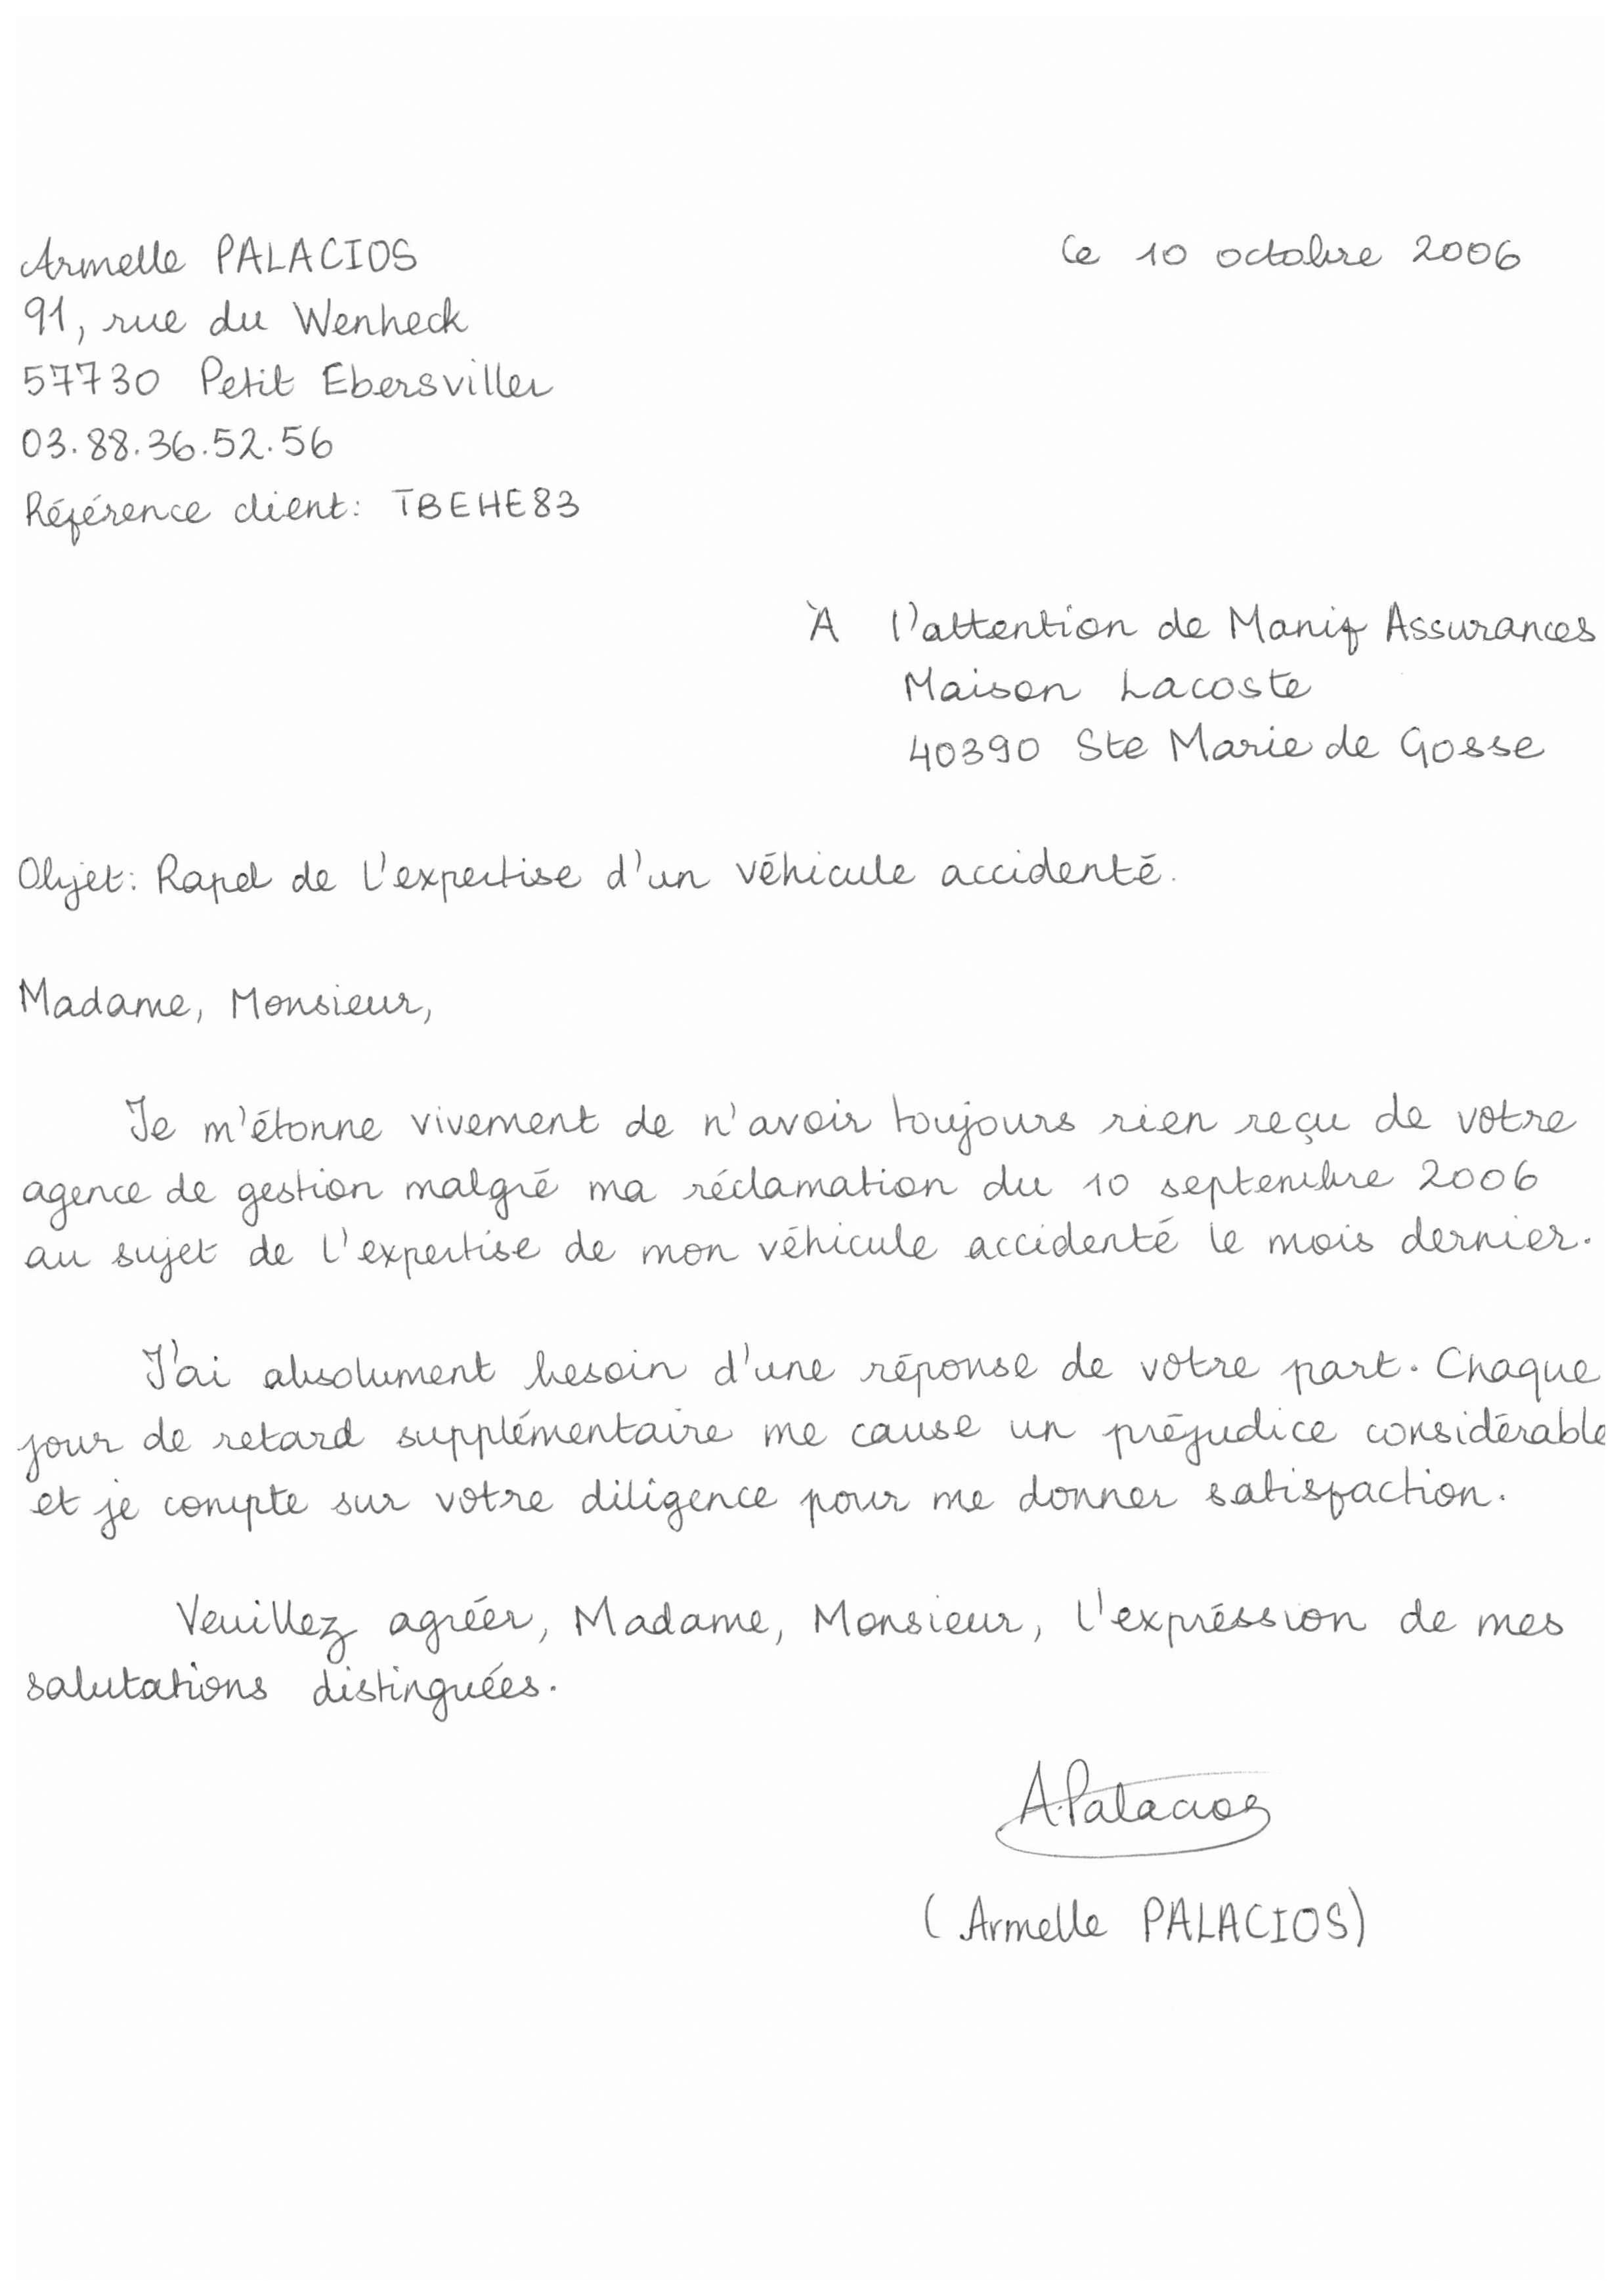 Armelle PALACIOS
le 10 octobre 2006
91, rue du Wenheck
57730 Petit Ebersviller
03.88.36.52.56
Référence client: TBEHE83
À l'attention de Manif Assurances
Maison Lacoste
40390 Ste Marie de Gosse
Objet: Rapel de l'expertise d'un véhicule accidenté.
Madame, Monsieur,
Je m'étonne vivement de n'avoir toujours rien reçu de votre
agence de gestion malgré ma réclamation du 10 septembre 2006
au sujet de l'expertise de mon véhicule accidenté le mois dernier.
J'ai absolument besoin d'une réponse de votre part. Chaque
jour de retard supplémentaire me cause un préjudice considérable
et je compte sur votre diligence pour me donner satisfaction.
Veuillez agréer, Madame, Monsieur, l'expréssion de mes
salutations distinguées.
A.Palacios
(Armelle PALACIOS)